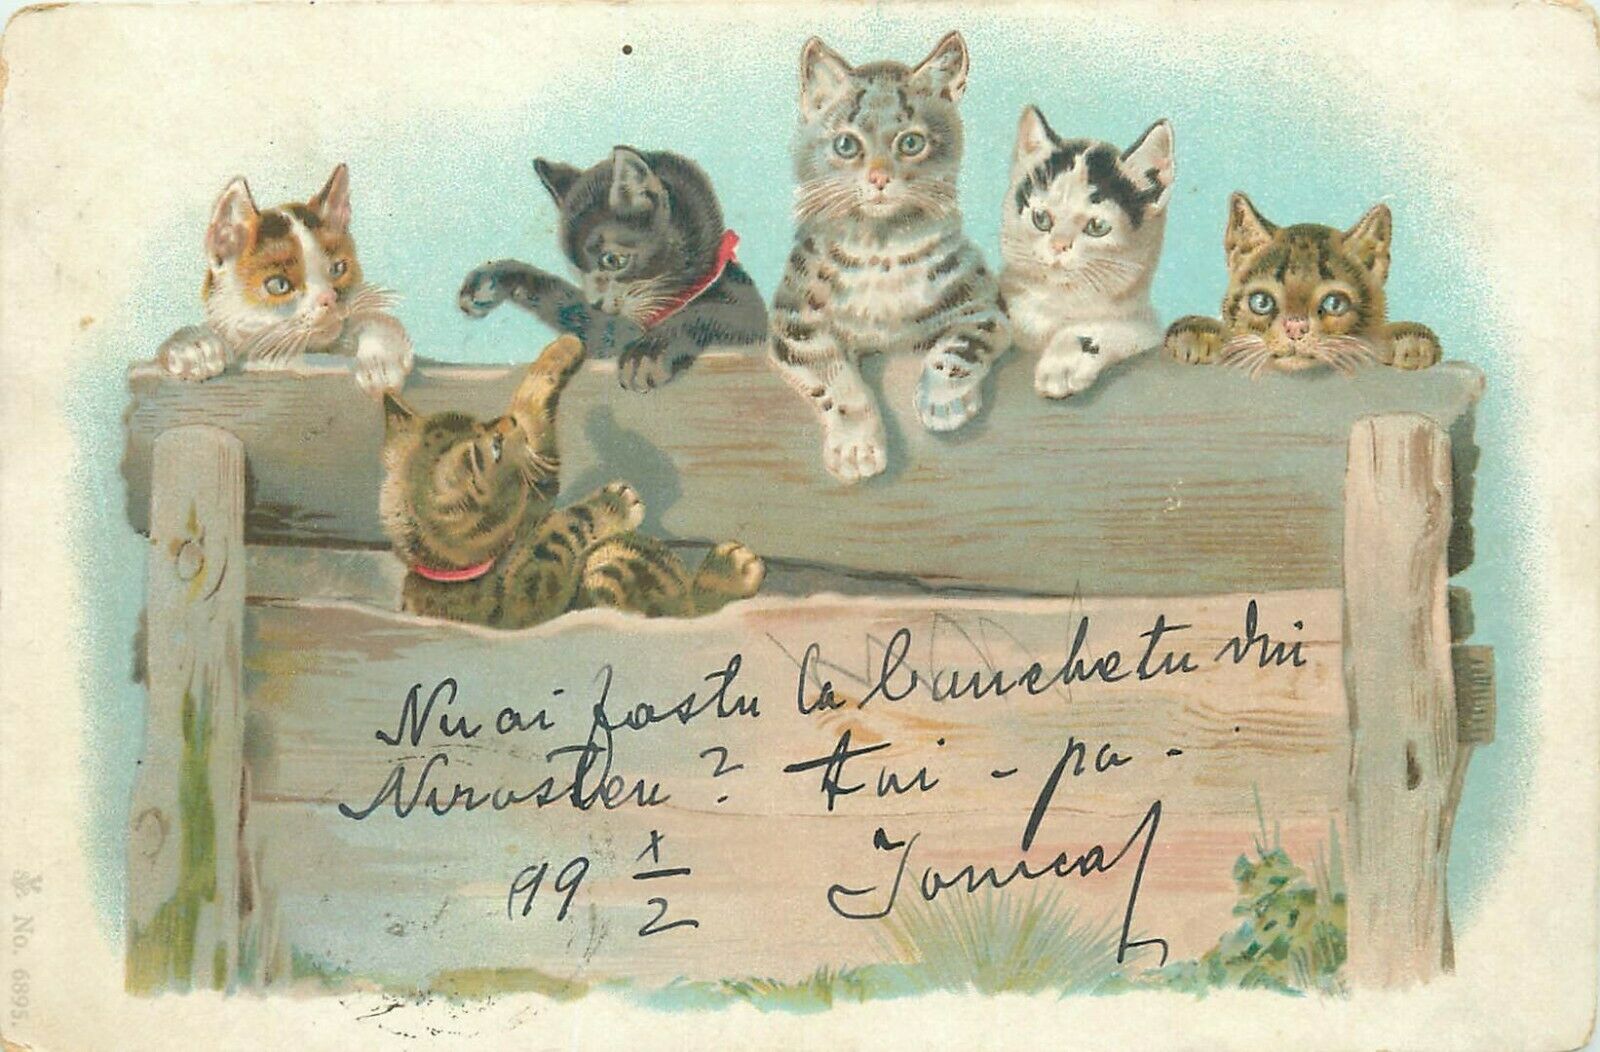 Nu ai fostu la banchetu din
? Hai - pa -
99 X/2 Ionica
No. 6895.